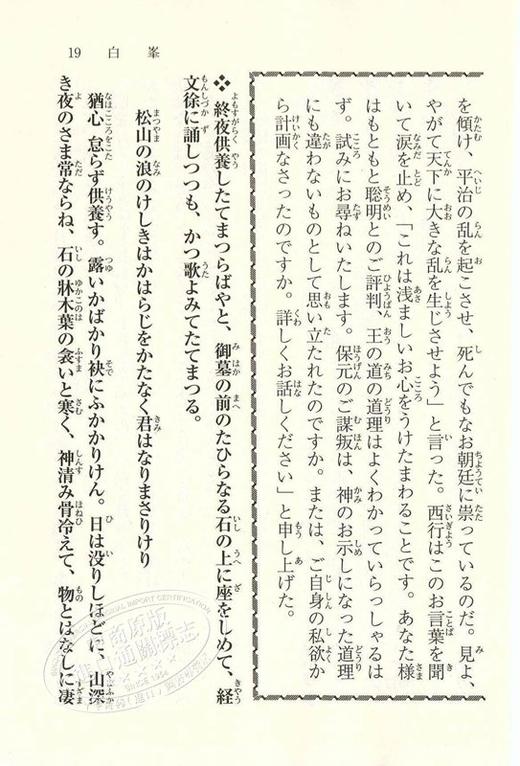 19 白峯
を傾け、平治の乱を起こさせ、死んでもなお朝廷に祟っているのだ。見よ、
やがて天下に大きな乱を生じさせよう」と言った。西行はこのお言葉を聞
いて涙を止め、「これは浅ましいお心をうけたまわることです。あなた様
はもともと聡明とのご評判、王の道の道理はよくわかっていらっしゃるは
ず。試みにお尋ねいたします。保元のご謀叛は、神のお示しになった道理
にも違わないものとして思い立たれたのですか。または、ご自身の私欲か
ら計画なさったのですか。詳しくお話しください」と申し上げた。
❖終夜供養したてまつらばやと、御墓の前のたひらなる石の上に座をしめて、経
文徐に誦しつつも、かつ歌よみてたてまつる。
松山の浪のけしきはかはらじをかたなく君はなりまさりけり
猶心怠らず供養す。露いかばかり袂にふかかりけん。日は没りしほどに、山深
き夜のさま常ならね、石の牀木葉の衾いと寒く、神清み骨冷えて、物とはなしに凄